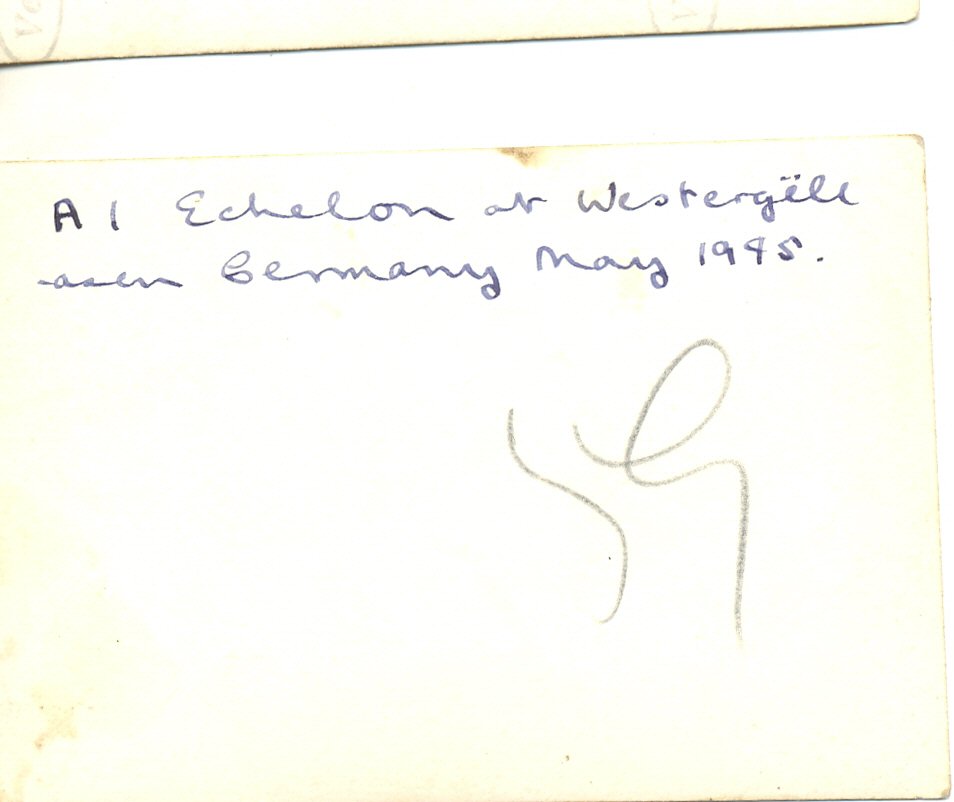 A 1 Echelon at Westergëll
-asen Germany May 1945.